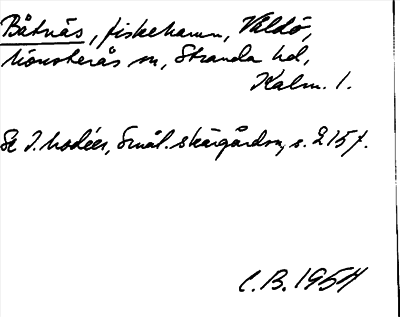 Båtnäs, fiskehamn, Väldö,
Mönsterås sn, Stranda hd,
Kalm. l.
Se I. Modéer, Smål. skärgårdsn, s. 215 f.
C.B. 1954